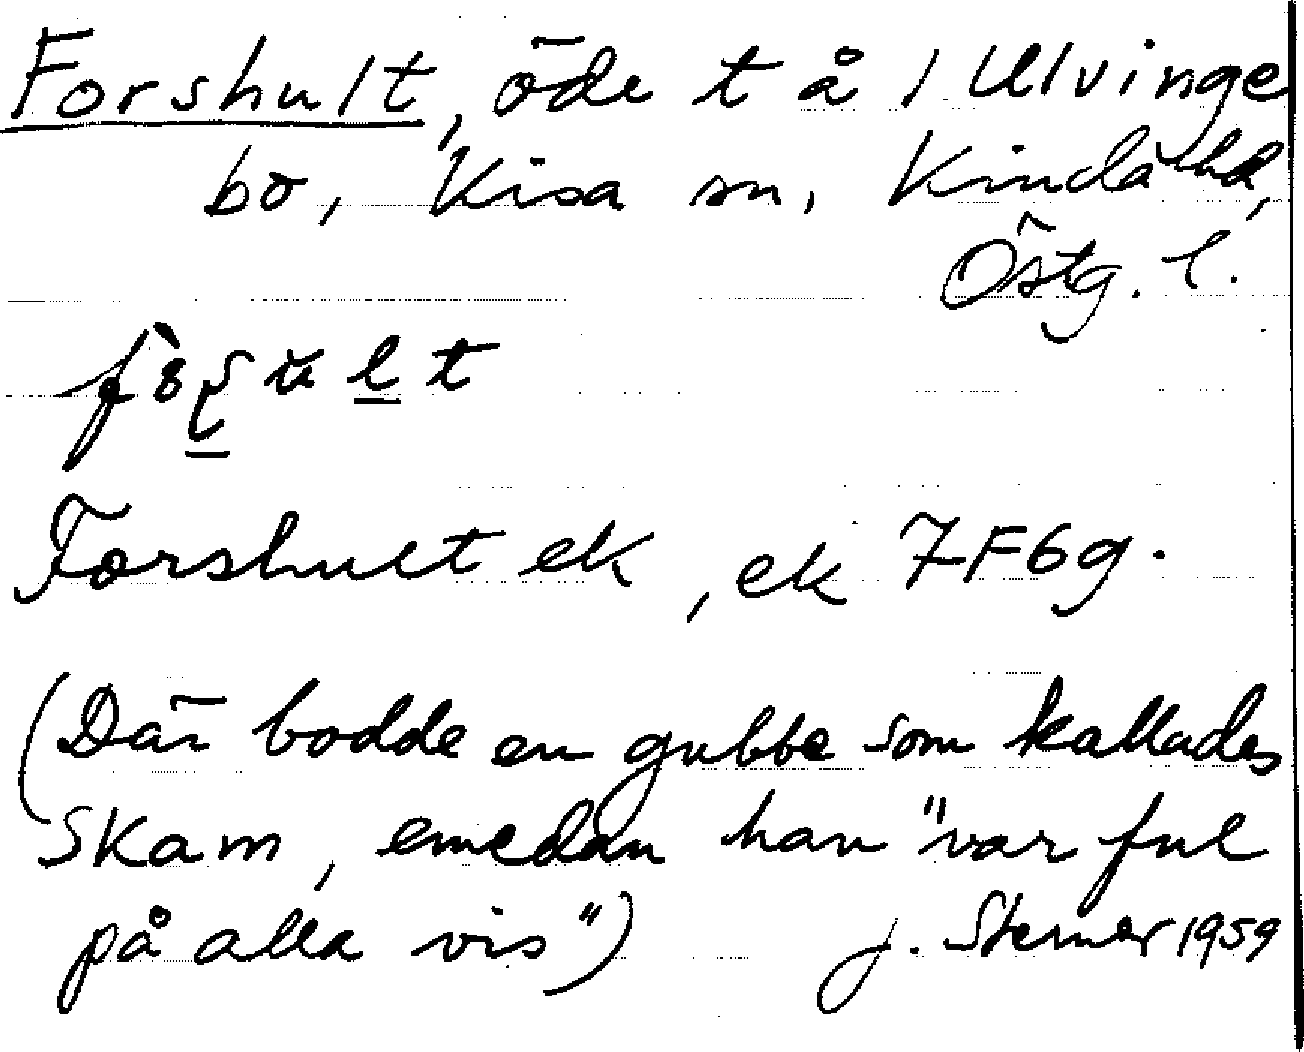 Forshult, öde t å / Ulvinge
bo, Kisa sn, Kinda hd,
Östg. l.
Forshult ek, ek 7F6g.
(Där bodde en gubbe som kallades
Skam, emedan han "var ful
på alla vis") J. Sterner 1959